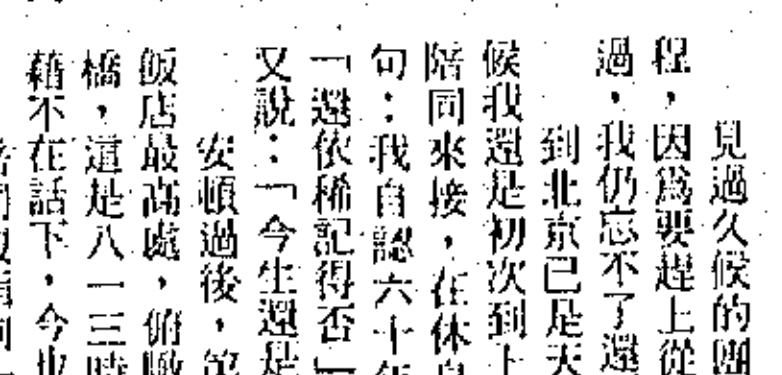 見過久候的團
程，因爲要趕上從
過，我仍忘不了還
到北京已是天
候我還是初次到上
陪同來接，在休息
句：我自認六十年
「還依稀記得否」
又說：「今生還是
安頓過後，
飯店最高處，俯瞰
橋，這是八一三時
藉不在話下，今也